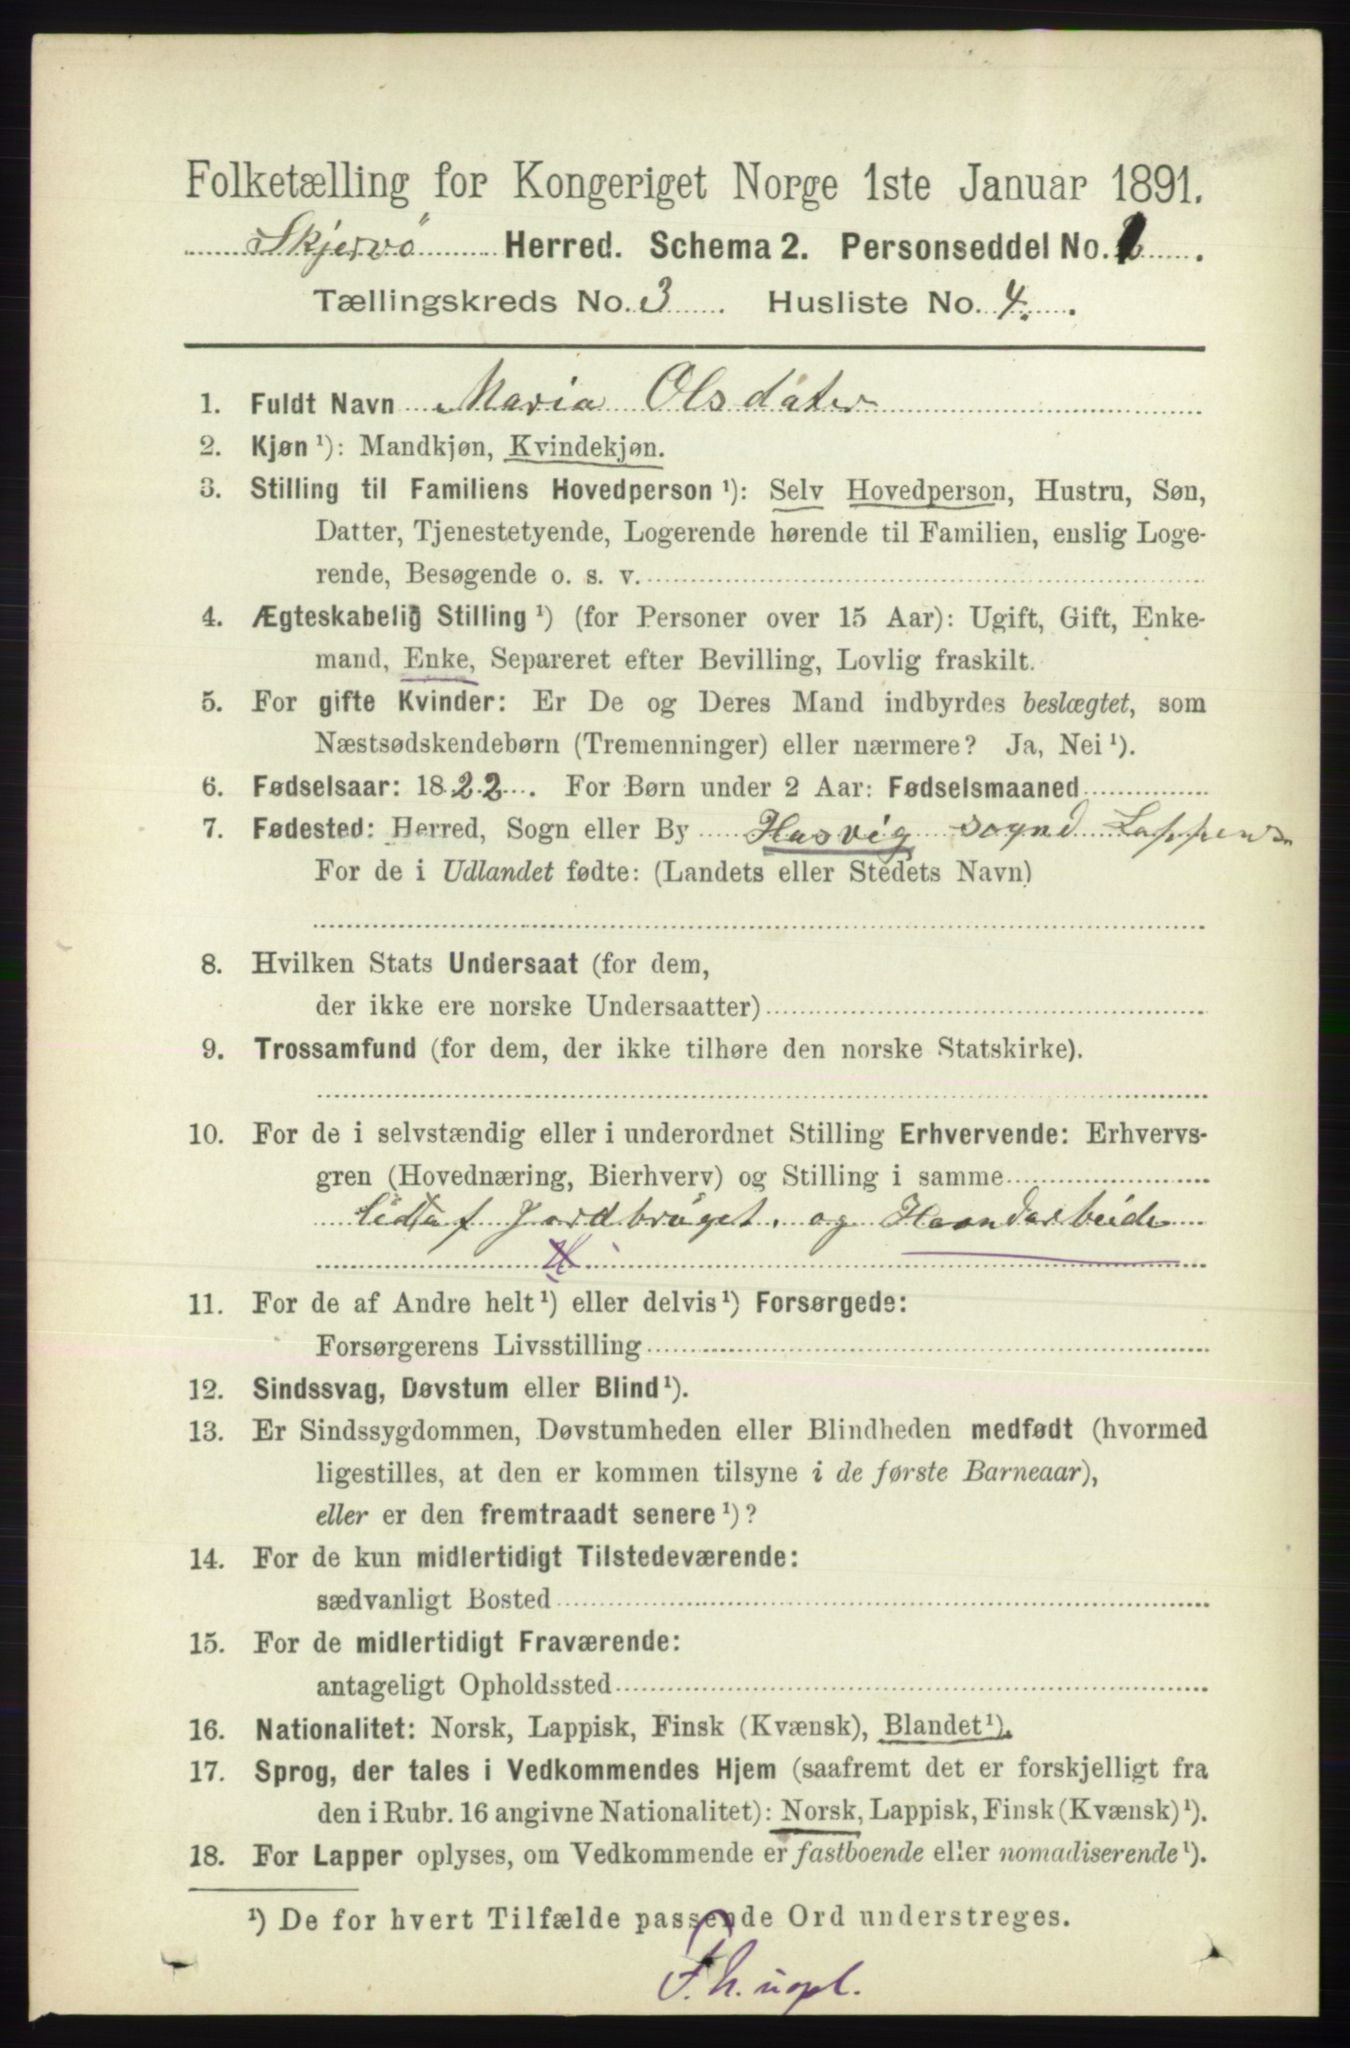 Folketælling for Kongeriget Norge 1ste Januar 1891.
Skjervö Herred. Schema 2. Personseddel No. 1.
Tællingskreds No. 3 Husliste No. 4.
1. Fuldt Navn Maria Olsdater
2. Kjøn ¹): Mandkjøn, Kvindekjøn.
3. Stilling til Familiens Hovedperson ¹): Selv Hovedperson, Hustru, Søn,
Datter, Tjenestetyende, Logerende hørende til Familien, enslig Loge-
rende, Besøgende o. s. v.
4. Ægteskabelig Stilling ¹) (for Personer over 15 Aar): Ugift, Gift, Enke-
mand, Enke, Separeret efter Bevilling, Lovlig fraskilt.
5. For gifte Kvinder: Er De og Deres Mand indbyrdes beslægtet, som
Næstsødskendebørn (Tremenninger) eller nærmere? Ja, Nei ¹).
6. Fødselsaar: 1822. For Børn under 2 Aar: Fødselsmaaned
7. Fødested: Herred, Sogn eller By Hasvig sognd
For de i Udlandet fødte: (Landets eller Stedets Navn)
8. Hvilken Stats Undersaat (for dem,
der ikke ere norske Undersaatter)
9. Trossamfund (for dem, der ikke tilhøre den norske Statskirke).
10. For de i selvstændig eller i underordnet Stilling Erhvervende: Erhvervs-
gren (Hovednæring, Bierhverv) og Stilling i samme
Jordbruget. og Haandarbeide
11. For de af Andre helt ¹) eller delvis ¹) Forsørgede:
Forsørgerens Livsstilling
12. Sindssvag, Døvstum eller Blind ¹).
13. Er Sindssygdommen, Døvstumheden eller Blindheden medfødt (hvormed
ligestilles, at den er kommen tilsyne i de første Barneaar),
eller er den fremtraadt senere ¹)?
14. For de kun midlertidigt Tilstedeværende:
sædvanligt Bosted
15. For de midlertidigt Fraværende:
antageligt Opholdssted
16. Nationalitet: Norsk, Lappisk, Finsk (Kvænsk), Blandet ¹).
17. Sprog, der tales i Vedkommendes Hjem (saafremt det er forskjelligt fra
den i Rubr. 16 angivne Nationalitet): Norsk, Lappisk, Finsk (Kvænsk) ¹).
18. For Lapper oplyses, om Vedkommende er fastboende eller nomadiserende ¹).
¹) De for hvert Tilfælde passende Ord understreges.